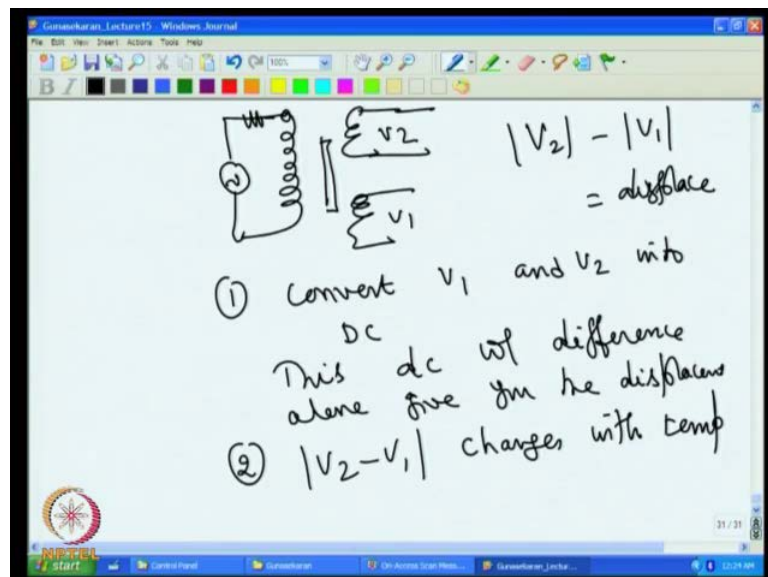 Gunasekaran_Lecture15 - Windows Journal
File Edit View Insert Actions Tools Help
100%
B I
V2
V1
|V2| - |V1|
= displace
① Convert V1 and V2 into
DC
This dc difference
alone give you the displacement
② |V2-V1| changes with temp
31 / 31
NPTEL
start Control Panel Gunasekaran On-Access Scan Mess... Gunasekaran_Lectur... 12:24 AM